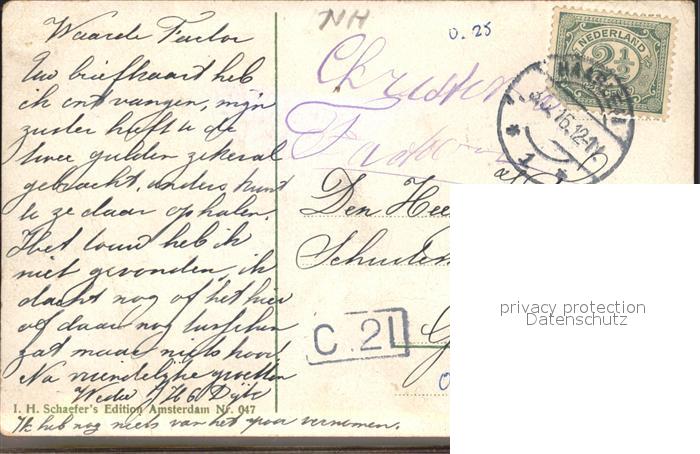 NH
0.25
Waarde Factor
Uw briefkaart heb
ik ontvangen, mijn
zuster heeft u de
twee gulden zekeral
gebracht, anders kunt
u ze daar ophalen.
Het touw heb ik
niet gevonden, ik
dacht nog of het hier
of daar nog tusschen
zat maar niets hoor!
Na vriendelijke groeten
Wed
Ik heb nog niets van het spoor vernomen.
I. H. Schaefer's Edition Amsterdam Nr. 047
NEDERLAND
2½
16.12-1
1
Den Hee
C.21
privacy protection
Datenschutz